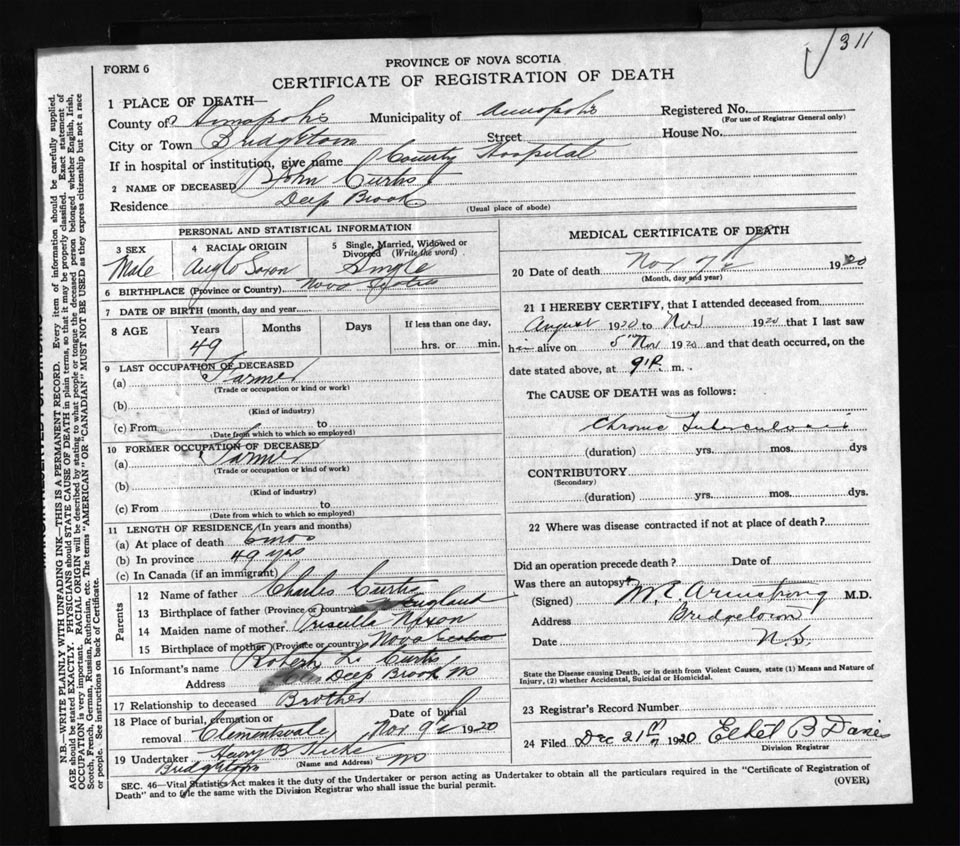 311
FORM 6
PROVINCE OF NOVA SCOTIA
CERTIFICATE OF REGISTRATION OF DEATH
1 PLACE OF DEATH—
County of Annapolis Municipality of Annapolis Registered No.
(For use of Registrar General only)
City or Town Bridgetown Street House No.
If in hospital or institution, give name County Hospital
2 NAME OF DECEASED John Curtis
Residence Deep Brook
(Usual place of abode)
PERSONAL AND STATISTICAL INFORMATION
3 SEX 4 RACIAL ORIGIN 5 Single, Married, Widowed or Divorced (Write the word)
Male Anglo Saxon Single
6 BIRTHPLACE (Province or Country) Nova Scotia
7 DATE OF BIRTH (month, day and year)
8 AGE Years Months Days If less than one day,
49 hrs. or min.
9 LAST OCCUPATION OF DECEASED
(a) Farmer
(Trade or occupation or kind or work)
(b)
(Kind of industry)
(c) From to
(Date from which to which so employed)
10 FORMER OCCUPATION OF DECEASED
(a) Farmer
(Trade or occupation or kind of work)
(b)
(Kind of industry)
(c) From to
(Date from which to which so employed)
11 LENGTH OF RESIDENCE (In years and months)
(a) At place of death 6 mos
(b) In province 49 yrs
(c) In Canada (if an immigrant)
Parents
12 Name of father Charles Curtis
13 Birthplace of father (Province or country) England
14 Maiden name of mother Priscilla Nixon
15 Birthplace of mother (Province or country) Nova Scotia
16 Informant's name Robert L. Curtis
Address Deep Brook NS
17 Relationship to deceased Brother
18 Place of burial, cremation or Date of burial
removal Clementsvale Nov 9th 1920
19 Undertaker Harry B Hicks
(Name and Address)
Bridgetown NS
MEDICAL CERTIFICATE OF DEATH
20 Date of death Nov 7th 1920
(Month, day and year)
21 I HEREBY CERTIFY, that I attended deceased from
August 1920 to Nov 1920 that I last saw
him alive on 5 Nov 1920 and that death occurred, on the
date stated above, at 9 P. m.
The CAUSE OF DEATH was as follows:
Chronic Tuberculosis
(duration) yrs. mos. dys
CONTRIBUTORY
(Secondary)
(duration) yrs. mos. dys.
22 Where was disease contracted if not at place of death?
Did an operation precede death? Date of
Was there an autopsy?
(Signed) M. E. Armstrong M.D.
Address Bridgetown
Date N.S.
State the Disease causing Death, or in death from Violent Causes, state (1) Means and Nature of
Injury, (2) whether Accidental, Suicidal or Homicidal.
23 Registrar's Record Number
24 Filed Dec 21st 1920 Ethel B Davies
Division Registrar
SEC. 46—Vital Statistics Act makes it the duty of the Undertaker or person acting as Undertaker to obtain all the particulars required in the "Certificate of Registration of
Death" and to file the same with the Division Registrar who shall issue the burial permit. (OVER)
N.B.—WRITE PLAINLY WITH UNFADING INK—THIS IS A PERMANENT RECORD. Every item of information should be carefully supplied.
AGE should be stated EXACTLY. PHYSICIANS should STATE CAUSE OF DEATH in plain terms, so that it may be properly classified. Exact statement of
OCCUPATION is very important. RACIAL ORIGIN will be described by stating to what people or tongue the deceased person belonged whether English, Irish,
Scotch, French, German, Russian, Ruthenian, etc. The terms "AMERICAN" OR "CANADIAN" MUST NOT BE USED as they express citizenship but not a race
or people. See instructions on back of Certificate.